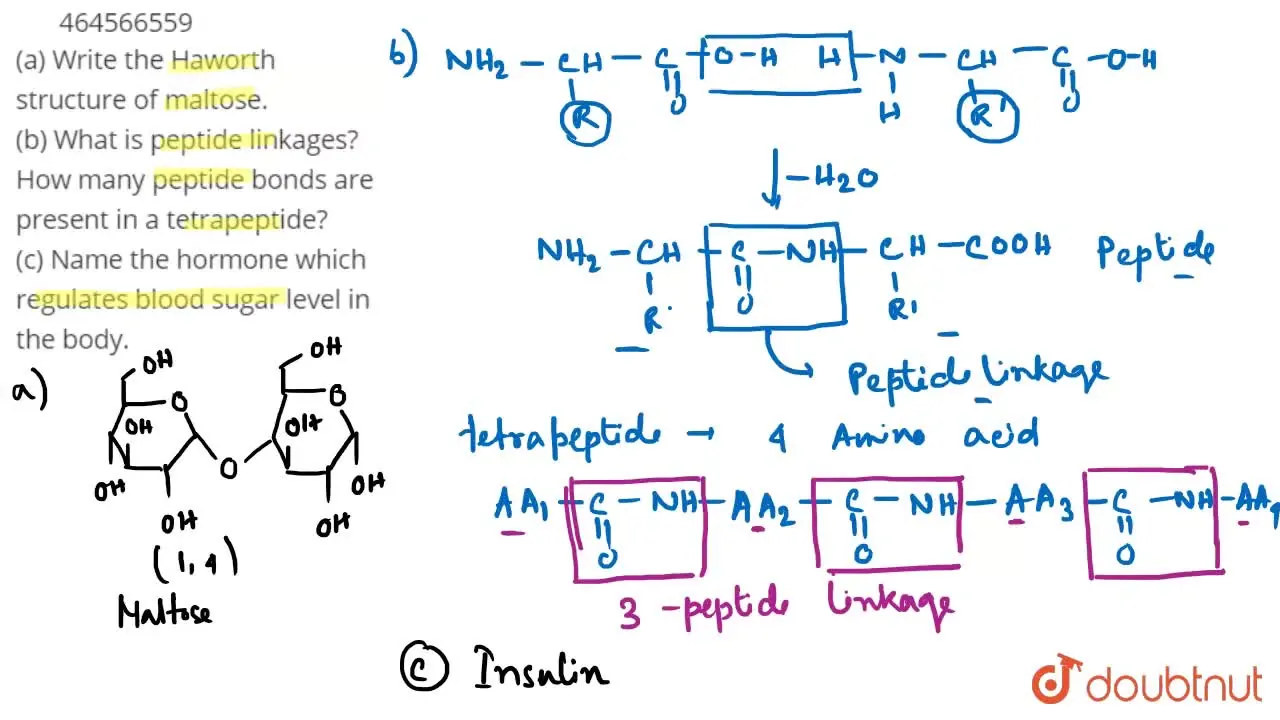 464566559
(a) Write the Haworth
structure of maltose.
(b) What is peptide linkages?
How many peptide bonds are
present in a tetrapeptide?
(c) Name the hormone which
regulates blood sugar level in
the body.
a)
OH
OH
O
O
OH
OH
O
OH
OH
OH
OH
(1,4)
Maltose
b) NH2 - CH - C - O-H H - N - CH - C -O-H
R O H R' O
-H2O
NH2-CH - C -NH - CH -COOH Peptide
R O R'
Peptide linkage
tetrapeptide → 4 Amino acid
AA1 - C - NH - AA2 - C - NH - AA3 - C - NH - AA4
O O O
3 -peptide linkage
c Insulin
doubtnut